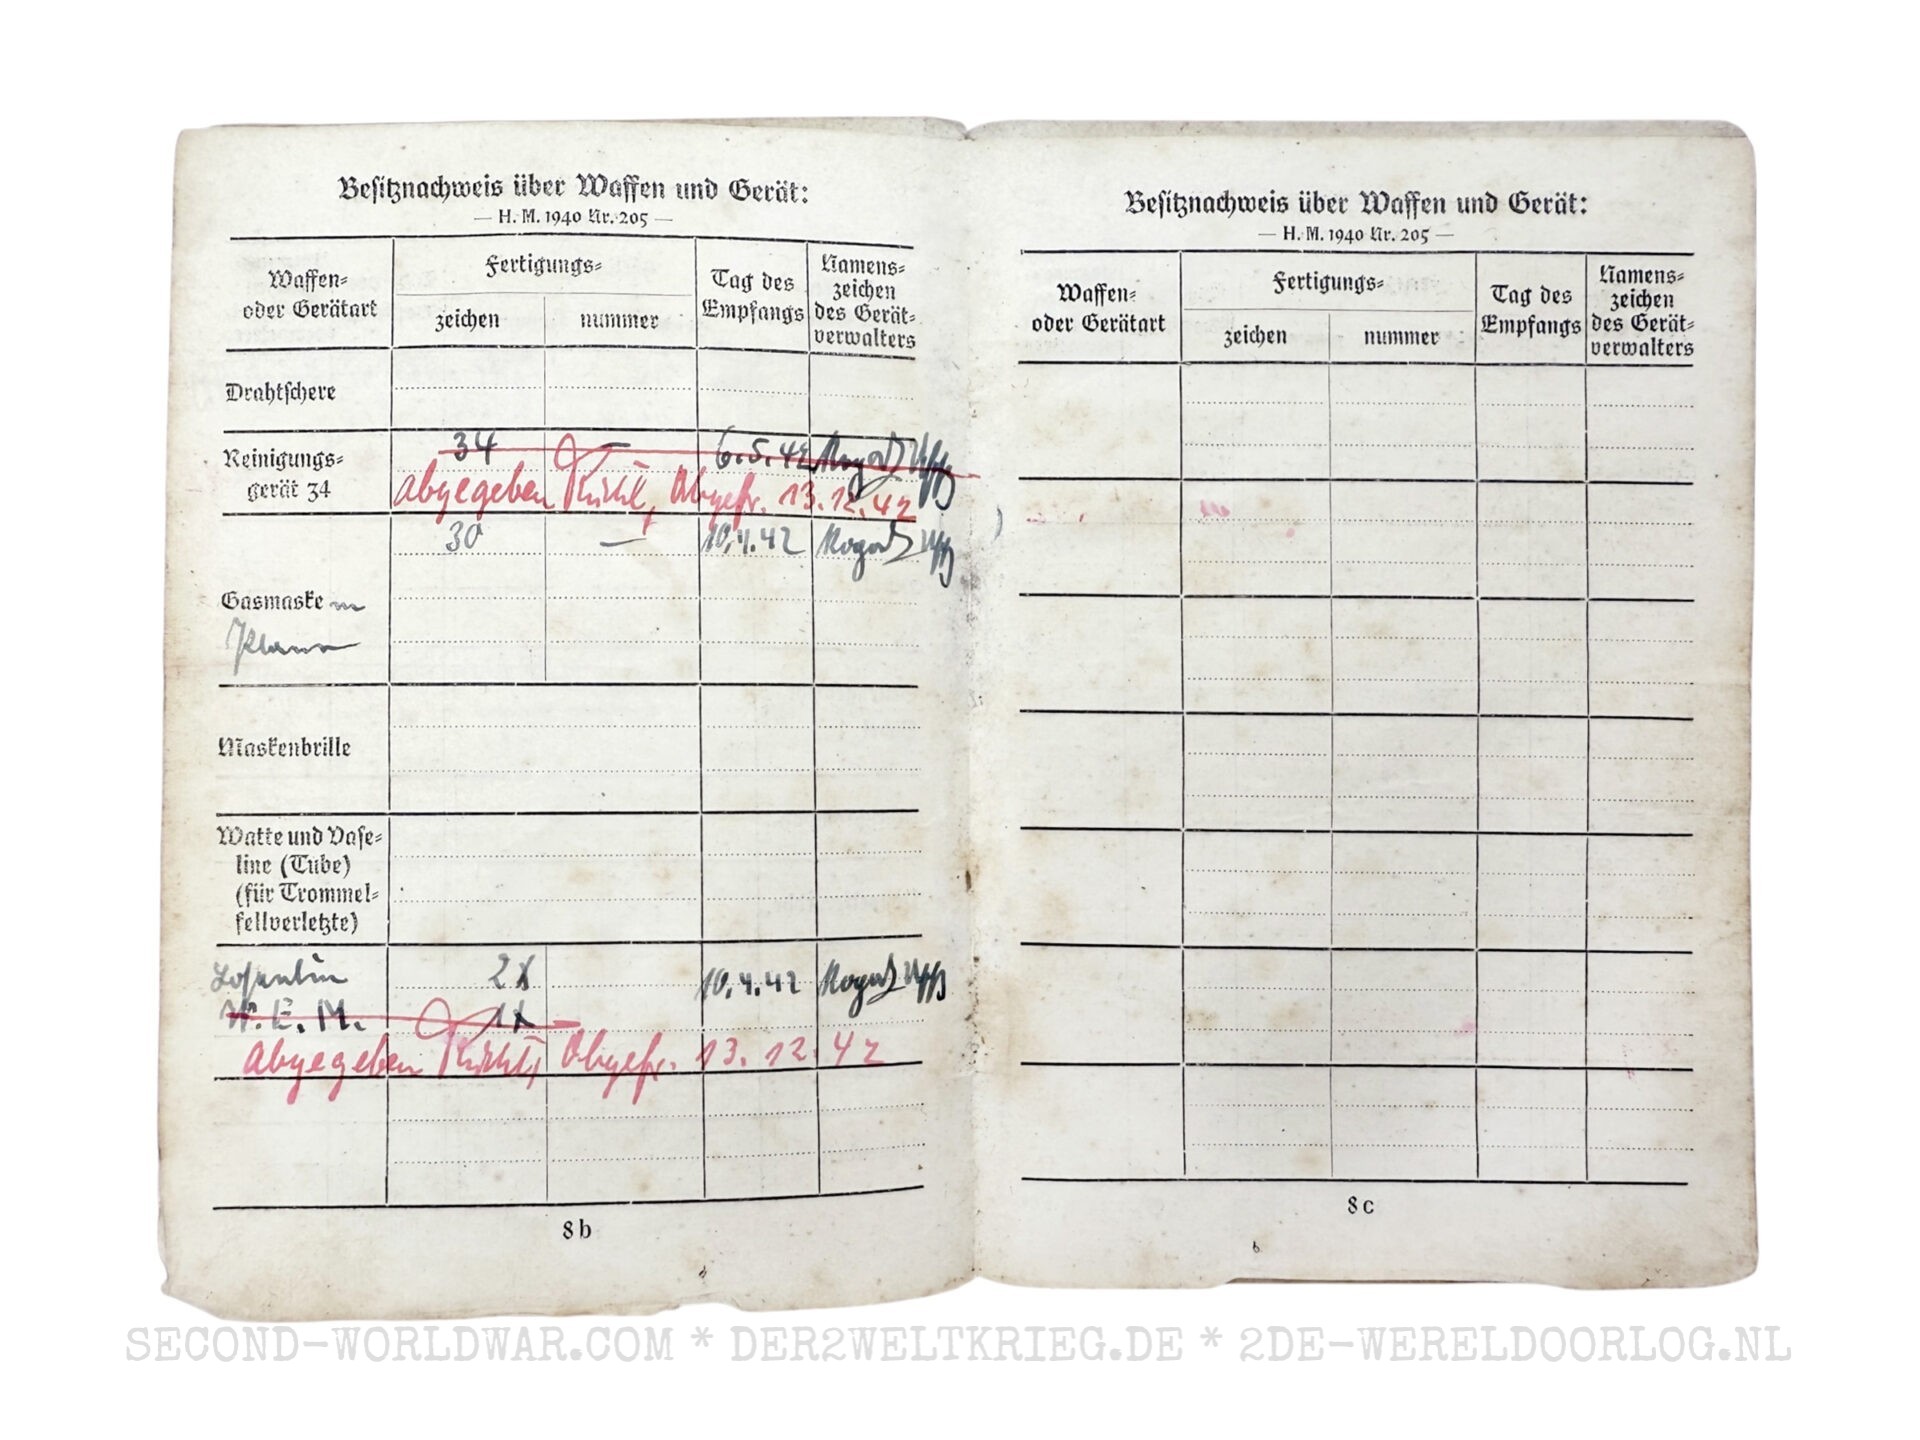 Besitznachweis über Waffen und Gerät:
— H. M. 1940 Nr. 205 —
Waffen-
oder Gerätart
Fertigungs-
zeichen
nummer
Tag des
Empfangs
Namens-
zeichen
des Gerät-
verwalters
Drahtschere
Reinigungs-
gerät 34
34 — 6.5.42 Uffz
abgegeben Obgefr. 13.12.42
30 — 10.4.42 Uffz
Gasmaske m
Maskenbrille
Watte und Vase-
line (Tube)
(für Trommel-
fellverletzte)
Losantin 2x 10.4.42 Uffz
W. E. M. 1x
abgegeben Obgefr. 13.12.42
8b
Besitznachweis über Waffen und Gerät:
— H. M. 1940 Nr. 205 —
Waffen-
oder Gerätart
Fertigungs-
zeichen
nummer
Tag des
Empfangs
Namens-
zeichen
des Gerät-
verwalters
8c
SECOND-WORLDWAR.COM * DER2WELTKRIEG.DE * 2DE-WERELDOORLOG.NL